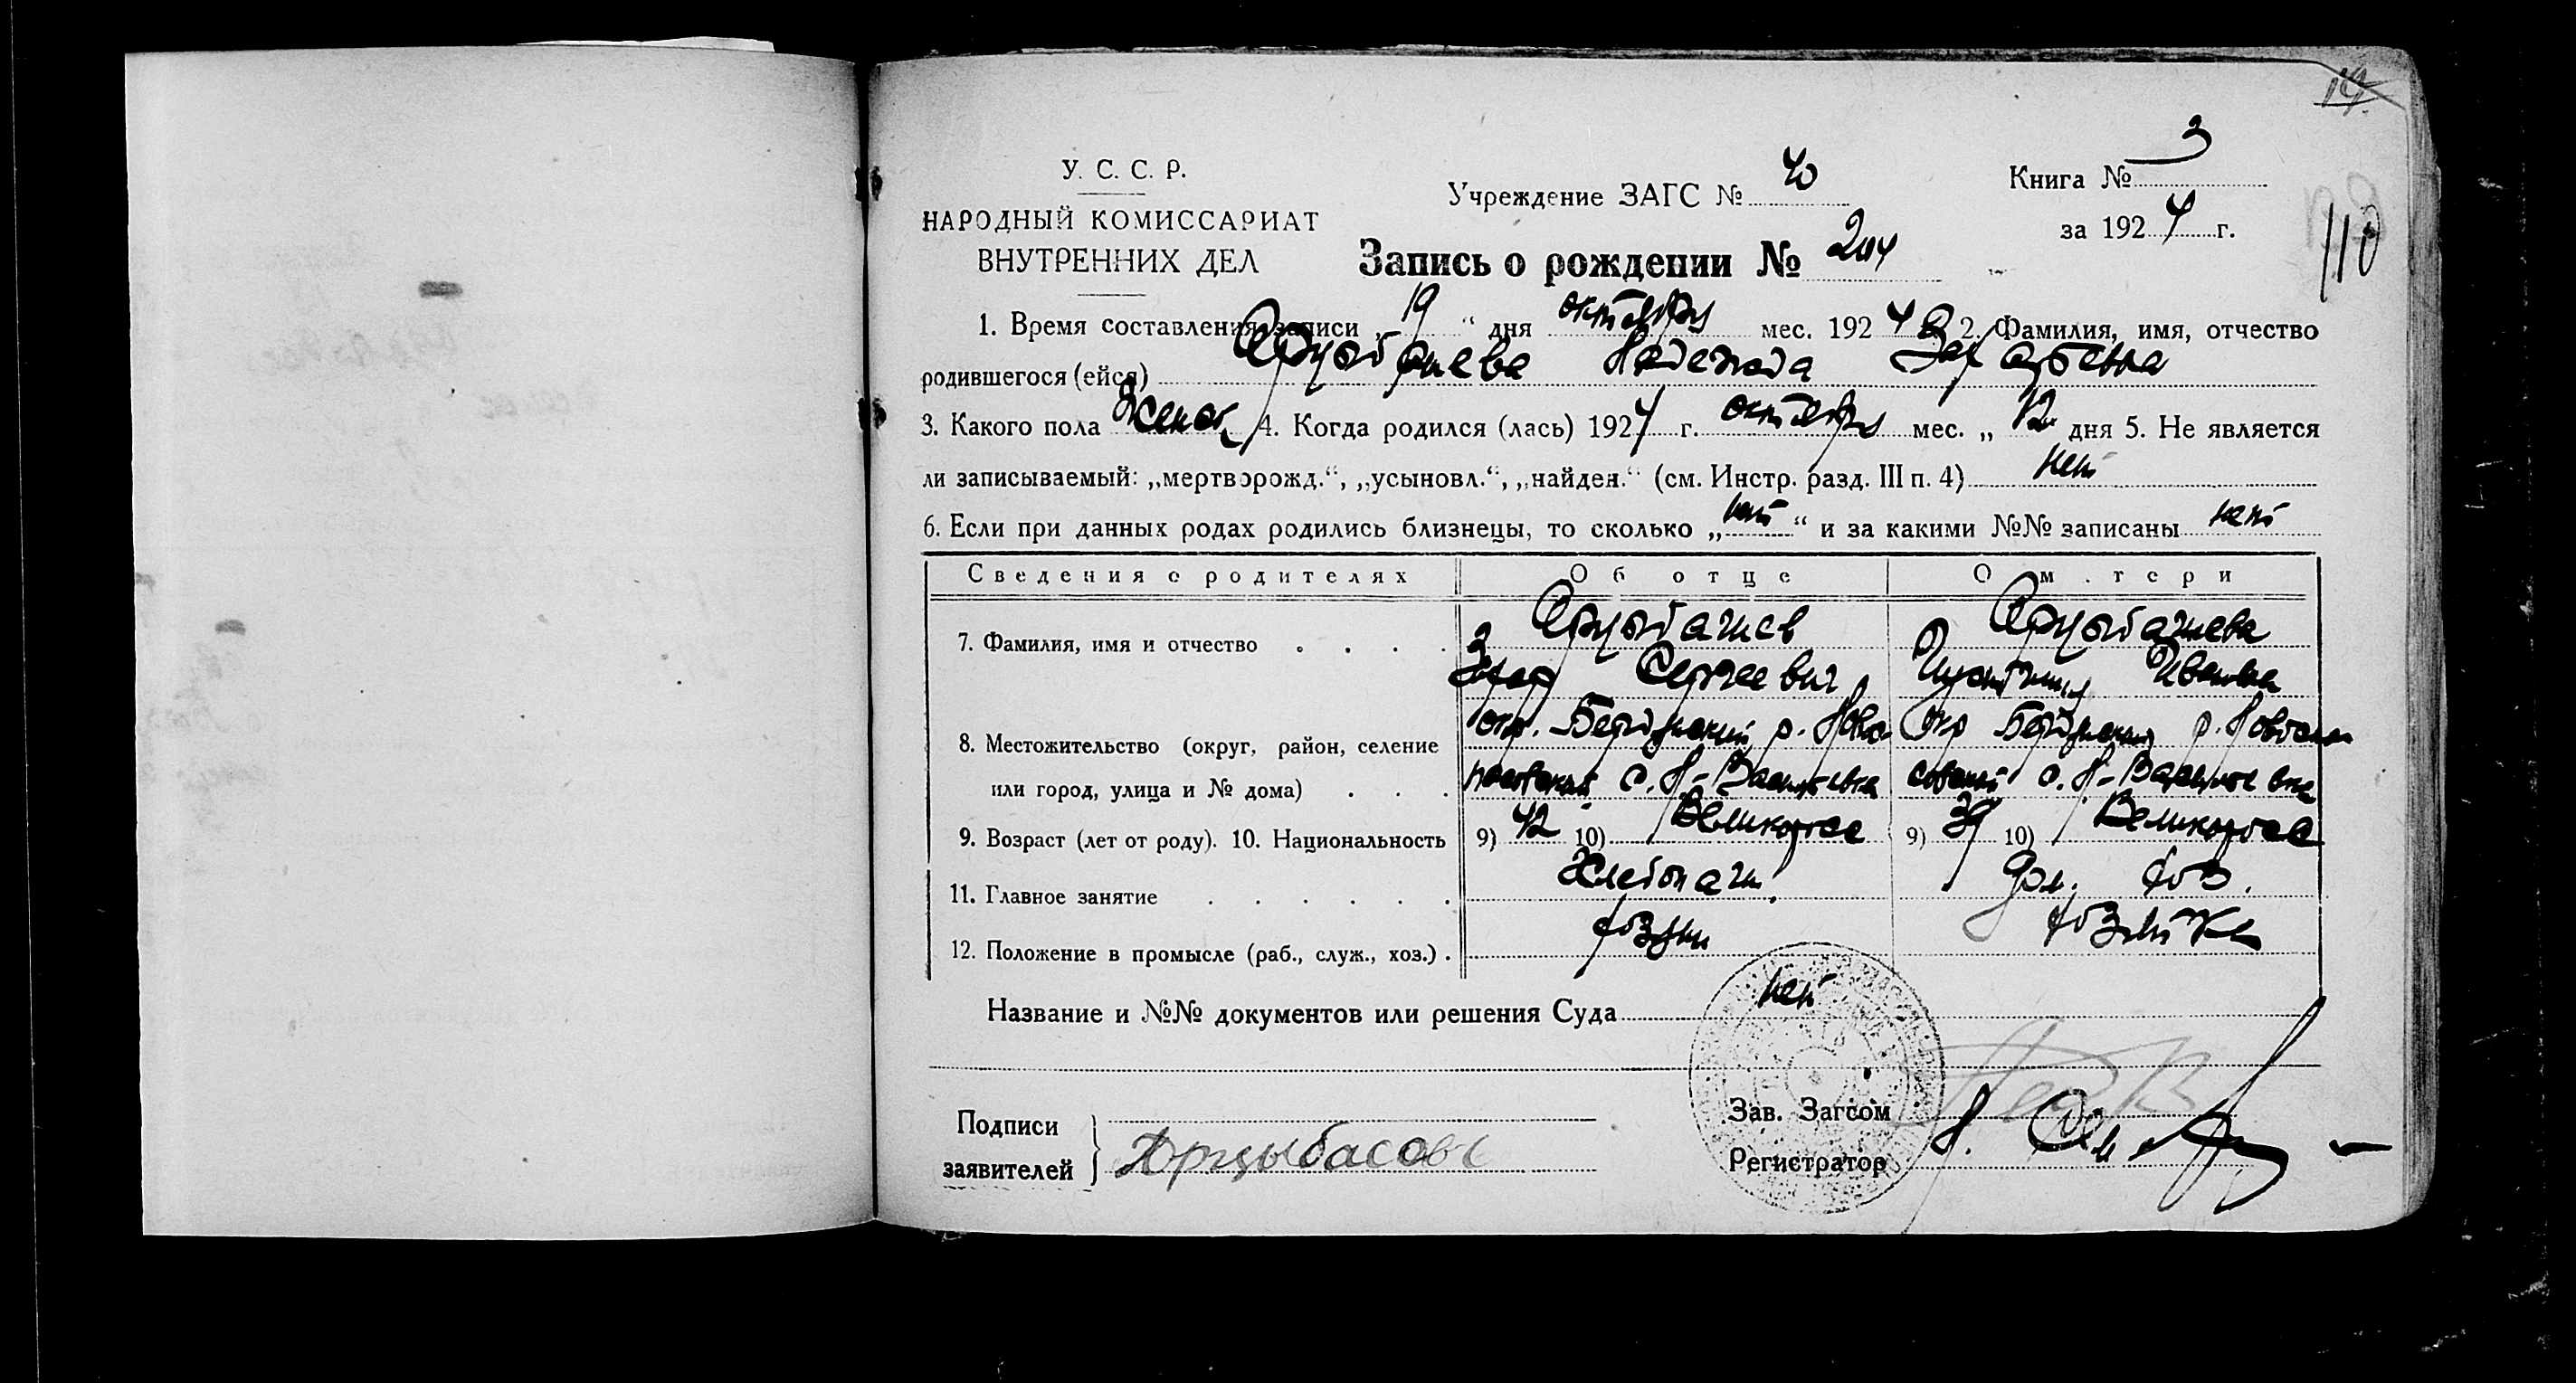 14
У. С. С. Р.
НАРОДНЫЙ КОМИССАРИАТ
ВНУТРЕННИХ ДЕЛ
Учреждение ЗАГС № 40
Книга № 3
за 1924 г.
110
Запись о рождении № 204
1. Время составления записи „ 19 “ дня октября мес. 1924 г. 2. Фамилия, имя, отчество
родившегося (ейся) Надежда Захарьевна
3. Какого пола женск 4. Когда родился (лась) 1924 г. октября мес. „ 12 дня 5. Не является
ли записываемый: „мертворожд.“, „усыновл.“, „найден.“ (см. Инстр. разд. III п. 4) нет
6. Если при данных родах родились близнецы, то сколько „ нет “ и за какими №№ записаны нет
Сведения о родителях Об отце О матери
7. Фамилия, имя и отчество
Захар Сергеевич Ивановна
8. Местожительство (округ, район, селение
или город, улица и № дома)
окр. Бердянский р. Ново- окр Бердянский р. Новоспа
спасовский с. Н-Васильевка совский с. Н-Васильевка
9. Возраст (лет от роду). 10. Национальность 9) 42 10) Великоросс 9) 39 10) Великоросс
11. Главное занятие Хлебопаш. Дом. хоз.
12. Положение в промысле (раб., служ., хоз.) хозяин хозяйка
Название и №№ документов или решения Суда нет
Подписи
заявителей
Зав. Загсом
Регистратор